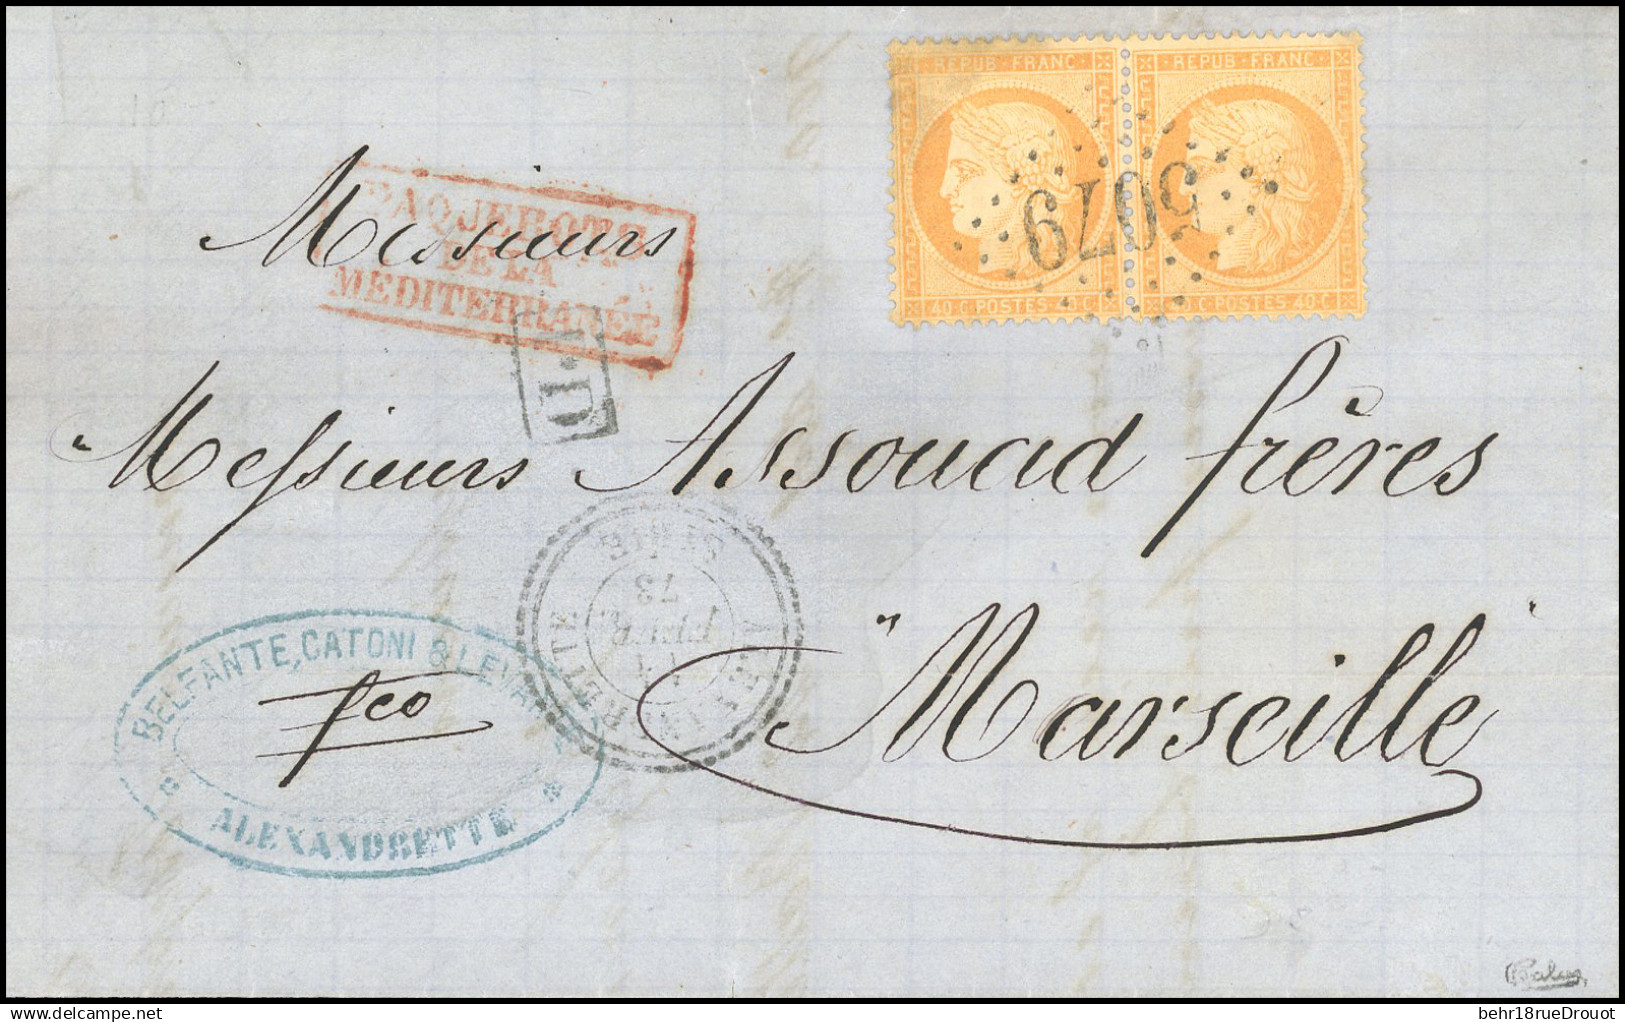 REPUB · FRANC
REPUB · FRANC
40 C · POSTES · 40 C
40 C · POSTES · 40 C
5079
PAQUEBOTS
DE LA
MEDITERRANÉE
P.D
Messieurs
Messieurs Assouad frères
Marseille
SYRIE
73
BELFANTE, CATONI & LEVANTE
ALEXANDRETTE
fco
behr18rueDrouot